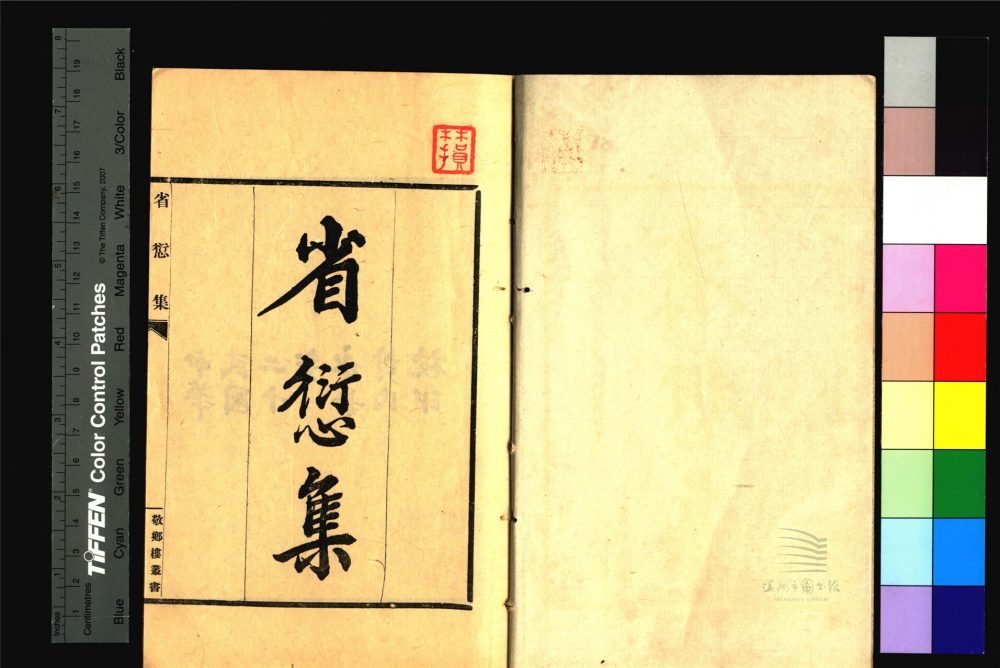 省愆集
省愆集
敬鄉樓叢書
温州市图书馆
WENZHOU LIBRARY
TIFFEN Color Control Patches
© The Tiffen Company, 2007
Inches
Centimetres
Blue Cyan Green Yellow Red Magenta White 3/Color Black
1 2 3 4 5 6 7 8
1 2 3 4 5 6 7 8 9 10 11 12 13 14 15 16 17 18 19